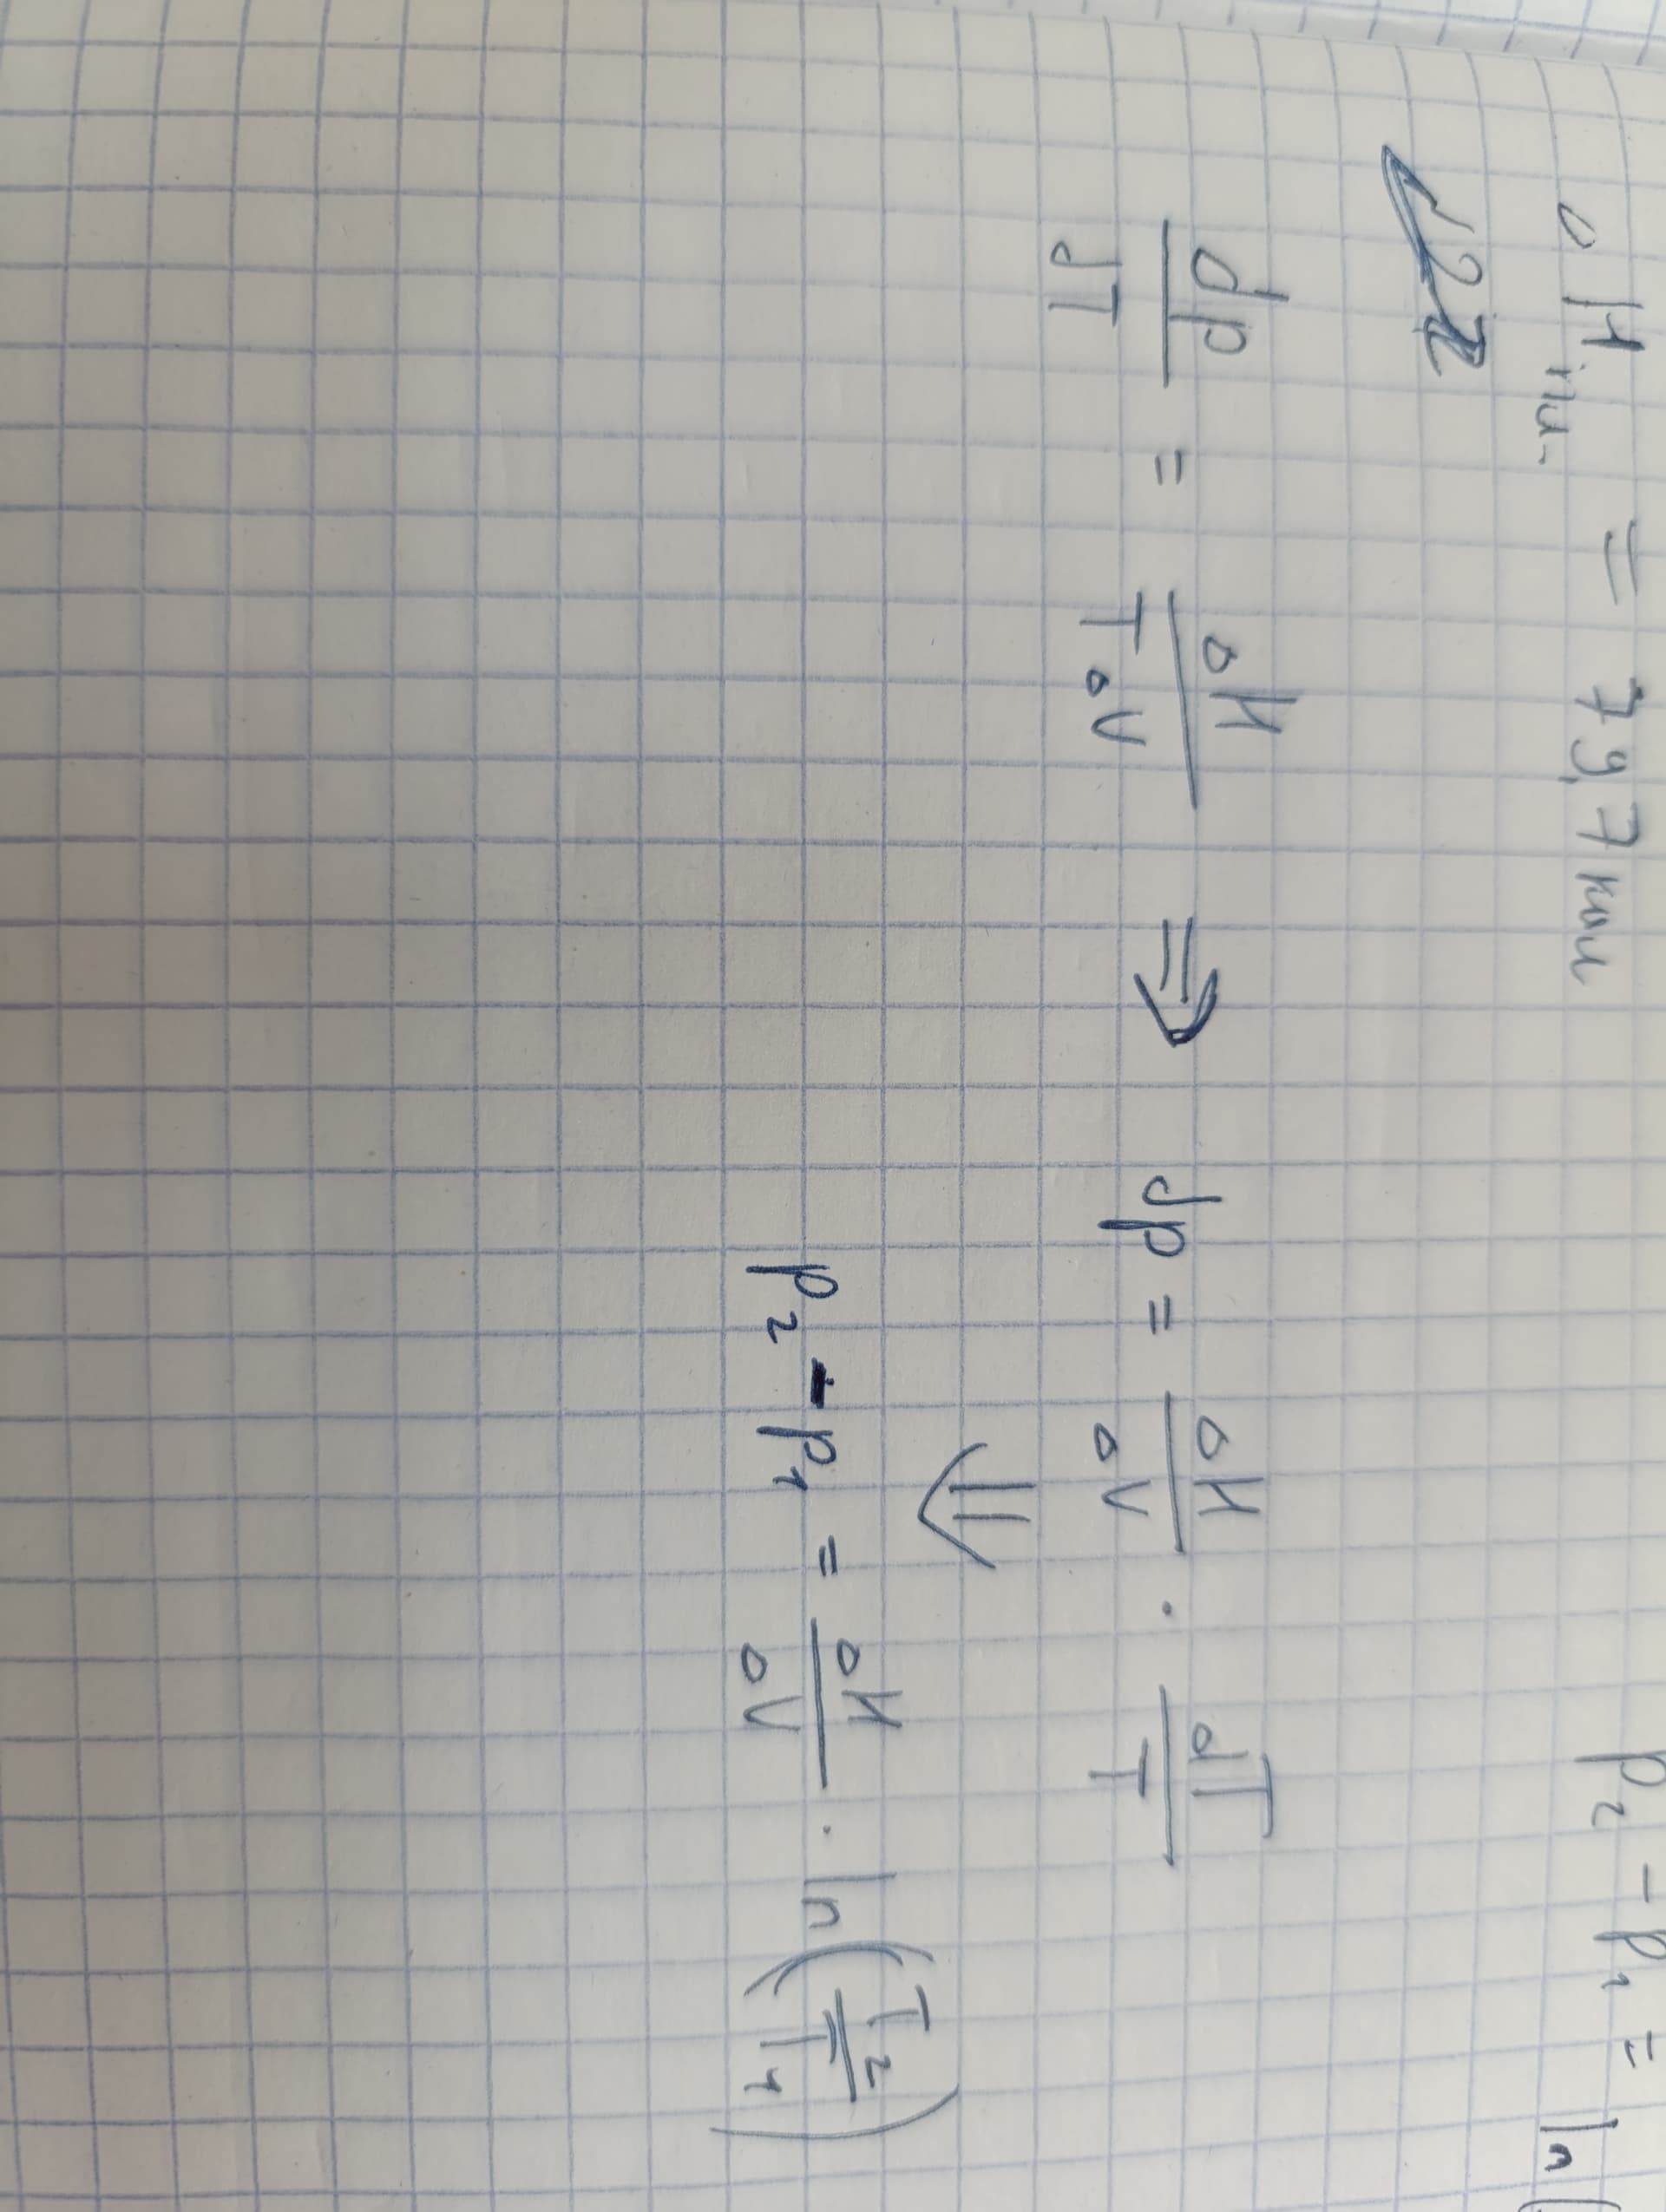 ΔH пл. = 79,7 кал p₂ - p₁ = ln(
dp/dT = ΔH/(T ΔV) ⇒ dp = ΔH/ΔV · dT/T
⇓
p₂ - p₁ = ΔH/ΔV · ln(T₂/T₁)